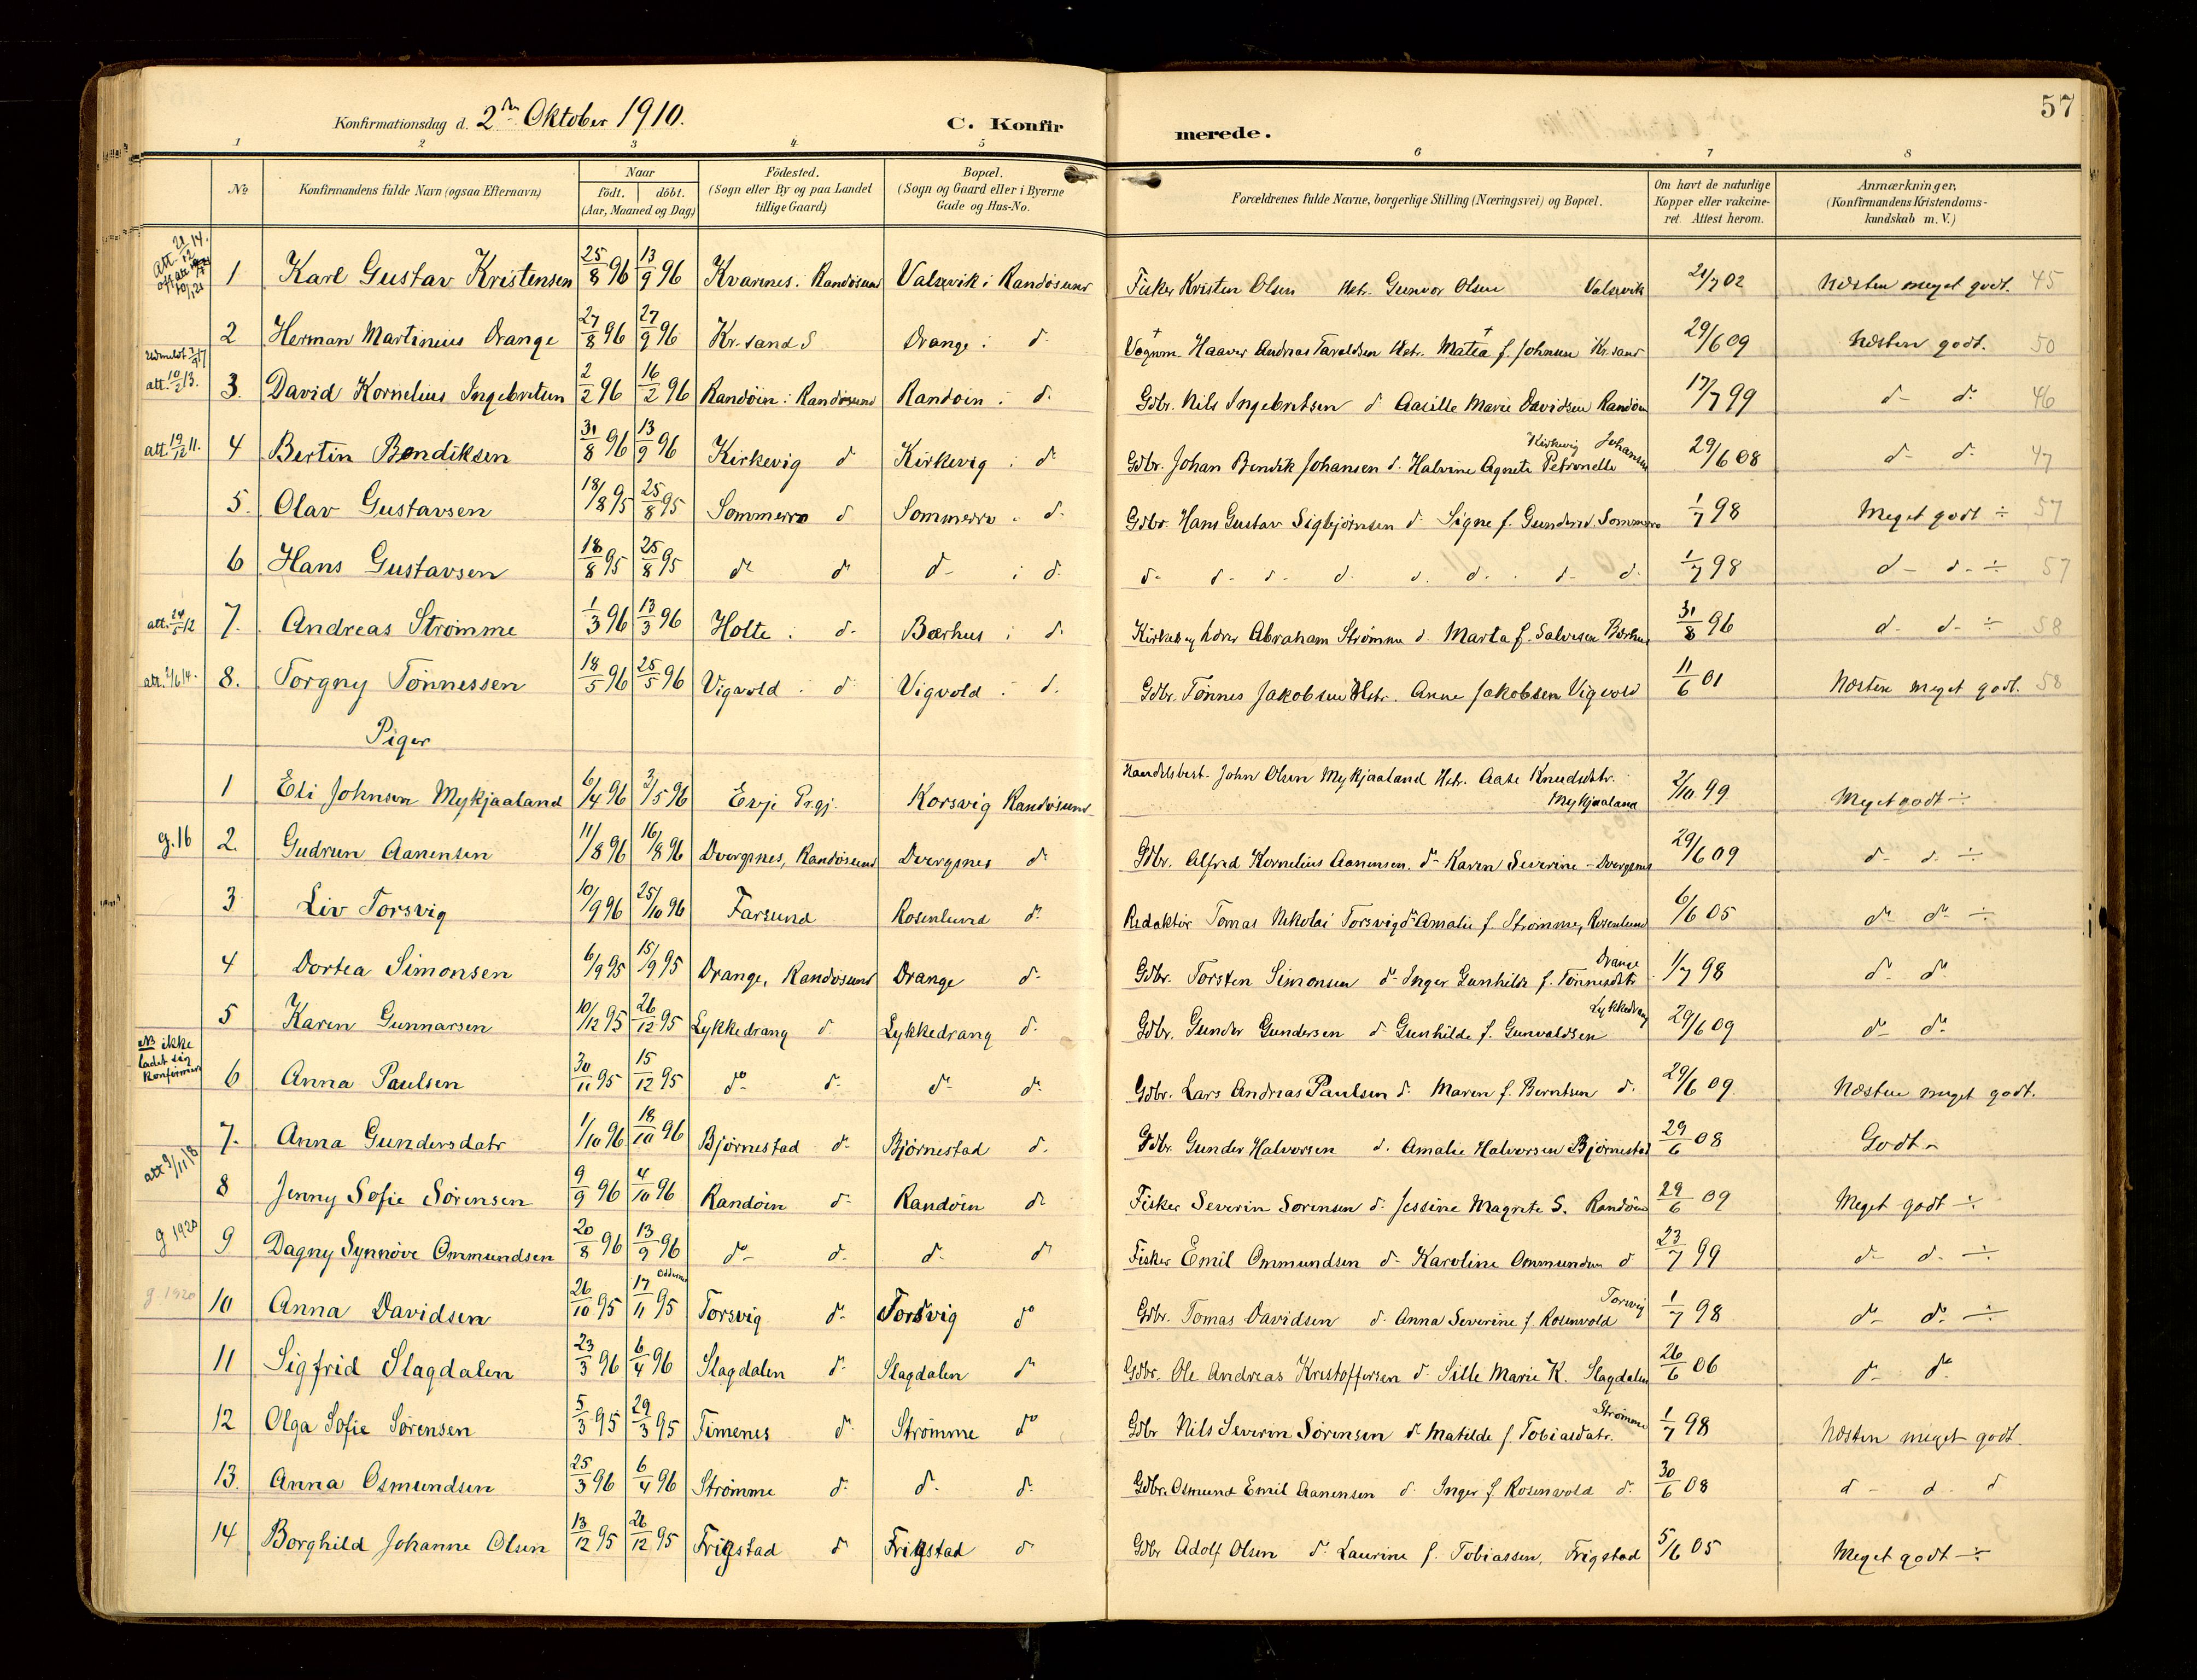 57
Konfirmationsdag d. 2den Oktober 1910. C. Konfirmerede.
1 2 3 4 5 6 7 8
No Konfirmandens fulde Navn (ogsaa Efternavn) Naar født. döbt. (Aar, Maaned og Dag) Födested. (Sogn eller By og paa Landet tillige Gaard) Bopæl. (Sogn og Gaard eller i Byerne Gade og Hus-No. Forældrenes fulde Navne, borgerlige Stilling (Næringsvei) og Bopæl. Om havt de naturlige Kopper eller vakcineret. Attest herom. Anmærkninger. (Konfirmandens Kristendomskundskab m. V.)
1 Karl Gustav Kristensen 25/8 96 13/9 96 Kvarnes i Randösund Valsvik i Randösund Fisker Kristen Olsen Hstr. Gunvor Olsen Valsvik 21/7 02 Næsten meget godt. 45
2 Herman Martinius Drange 27/8 96 27/9 96 Kr.sand S Drange i d. Vognm. Haaver Andreas Taraldsen Hstr. Matea f. Johnsen Kr.sand 29/6 09 Næsten godt. 50
att. 10/2 13. 3. David Kornelius Ingebretsen 2/2 96 16/2 96 Randöin i Randösund Randöin i d. Gdbr. Nils Ingebretsen d. Aasille Marie Davidsen Randöin 17/7 99 d- d. 46
att. 19/12 11. 4 Bertin Bendiksen 31/8 96 13/9 96 Kirkevig d Kirkevig i d. Gdbr. Johan Bendik Johansen d. Halvine Agnete Petronelle Johansen Kirkevig 29/6 08 d- d. 47
5. Olav Gustavsen 18/8 95 25/8 95 Sommerro d Sommerro i d. Gdbr. Hans Gustav Sigbjörnsen d. Signe f. Gundersd. Sommerro 1/7 98 Meget godt ÷ 57
6 Hans Gustavsen 18/8 95 25/8 95 d. d. d- i d. d- d- d- d. d. d. d- d. 1/7 98 d- d- ÷ 57
att. 24/5 12 7. Andreas Strømme 1/3 96 13/3 96 Holte i d. Bærhus i d. Abraham Strømme d. Marta f. Salvesen Bærhus 31/8 96 d- d- ÷ 58
att. 2/6 14. 8. Torgny Tönnessen 18/5 96 25/5 96 Vigvold i d. Vigvold i d. Gdbr. Tönnes Jakobsen Hstr. Anne Jakobsen Vigvold 11/6 01 Næsten meget godt. 58
Piger
1 Eli Johnsen Mykjaaland 6/4 96 3/5 96 Evje Prgj. Korsvig Randösund Handelsbest. John Olsen Mykjaaland Hstr. Aase Knudsdtr. Mykjaaland 2/10 99 Meget godt ÷
g. 16 2. Gudrun Aanensen 11/8 96 16/8 96 Dvergsnes, Randösund Dvergsnes d. Gdbr. Alfred Kornelius Aanensen. d- Karen Severine - Dvergsnes 29/6 09 d- d. ÷
3 Liv Torsvig 10/9 96 25/10 96 Farsund Rosenlund d. Redaktör Tomas Nikolai Torsvig d. Amalie f. Strømme, Rosenlund 6/6 05 d. d. ÷
4 Dortea Simonsen 6/9 95 15/9 95 Drange, Randösund Drange d- Gdbr. Torsten Simonsen d- Inger Gunhilde f. Tönnesdtr Drange 1/7 98 d- d.
5 Karen Gunnarsen 10/12 95 26/12 95 Lykkedrang d. Lykkedrang d. Gdbr. Gunder Gundersen d Gunhilde f. Gunvaldsen Lykkedrang 29/6 09 d- d.
NB ikke ladet sig konfirmere 6 Anna Paulsen 30/11 95 15/12 95 do d. d. d. Gdbr. Lars Andreas Paulsen d. Maren f. Berntsen d. 29/6 09 Næsten meget godt.
7. Anna Gundersdatr 1/10 96 18/10 96 Bjørnestad d. Bjørnestad d. Gdbr. Gunder Halvorsen d. Amalie Halvorsen Bjørnestad 29/6 08 Godt -
att 9/11 18 8 Jenny Sofie Sörensen 9/9 96 4/10 96 Randöin d- Randöin d. Fisker Severin Sörensen d. Jessine Magrete S. Randöin 29/6 09 Meget godt ÷
g 1920 9 Dagny Synnöve Ommundsen 20/8 96 13/9 96 do- d. d. d. Fisker Emil Ommundsen d- Karoline Ommundsen d 23/7 99 d- d. ÷
g. 1920 10 Anna Davidsen 26/10 95 17/11 95 Oddernes Torsvig d- Torsvig do Gdbr. Tomas Davidsen d. Anna Severine f. Rosenvold Torsvig 1/7 98 d- d. ÷
11 Sigfrid Slagdalen 23/3 96 6/4 96 Slagdalen d. Slagdalen d. Gdbr. Ole Andreas Kristoffersen d. Sille Marie K. Slagdalen 26/6 06 d- d.
12 Olga Sofie Sørensen 5/3 95 29/3 95 Timenes d. Strømme do Gdbr Nils Severin Sørensen d. Matilde f Tobiasdatr. Strømme 1/7 98 Næsten meget godt.
13. Anna Osmundsen 25/3 96 6/4 96 Strømme d. d. d. Gdbr. Osmund Emil Aanensen d. Inger f. Rosenvold d. 30/6 08 d- d. d
14 Borghild Johanne Olsen 13/12 95 26/12 95 Frigstad d Frigstad d Gdbr Adolf Olsen d. Laurine f. Tobiassen, Frigstad 5/6 05 Meget godt ÷